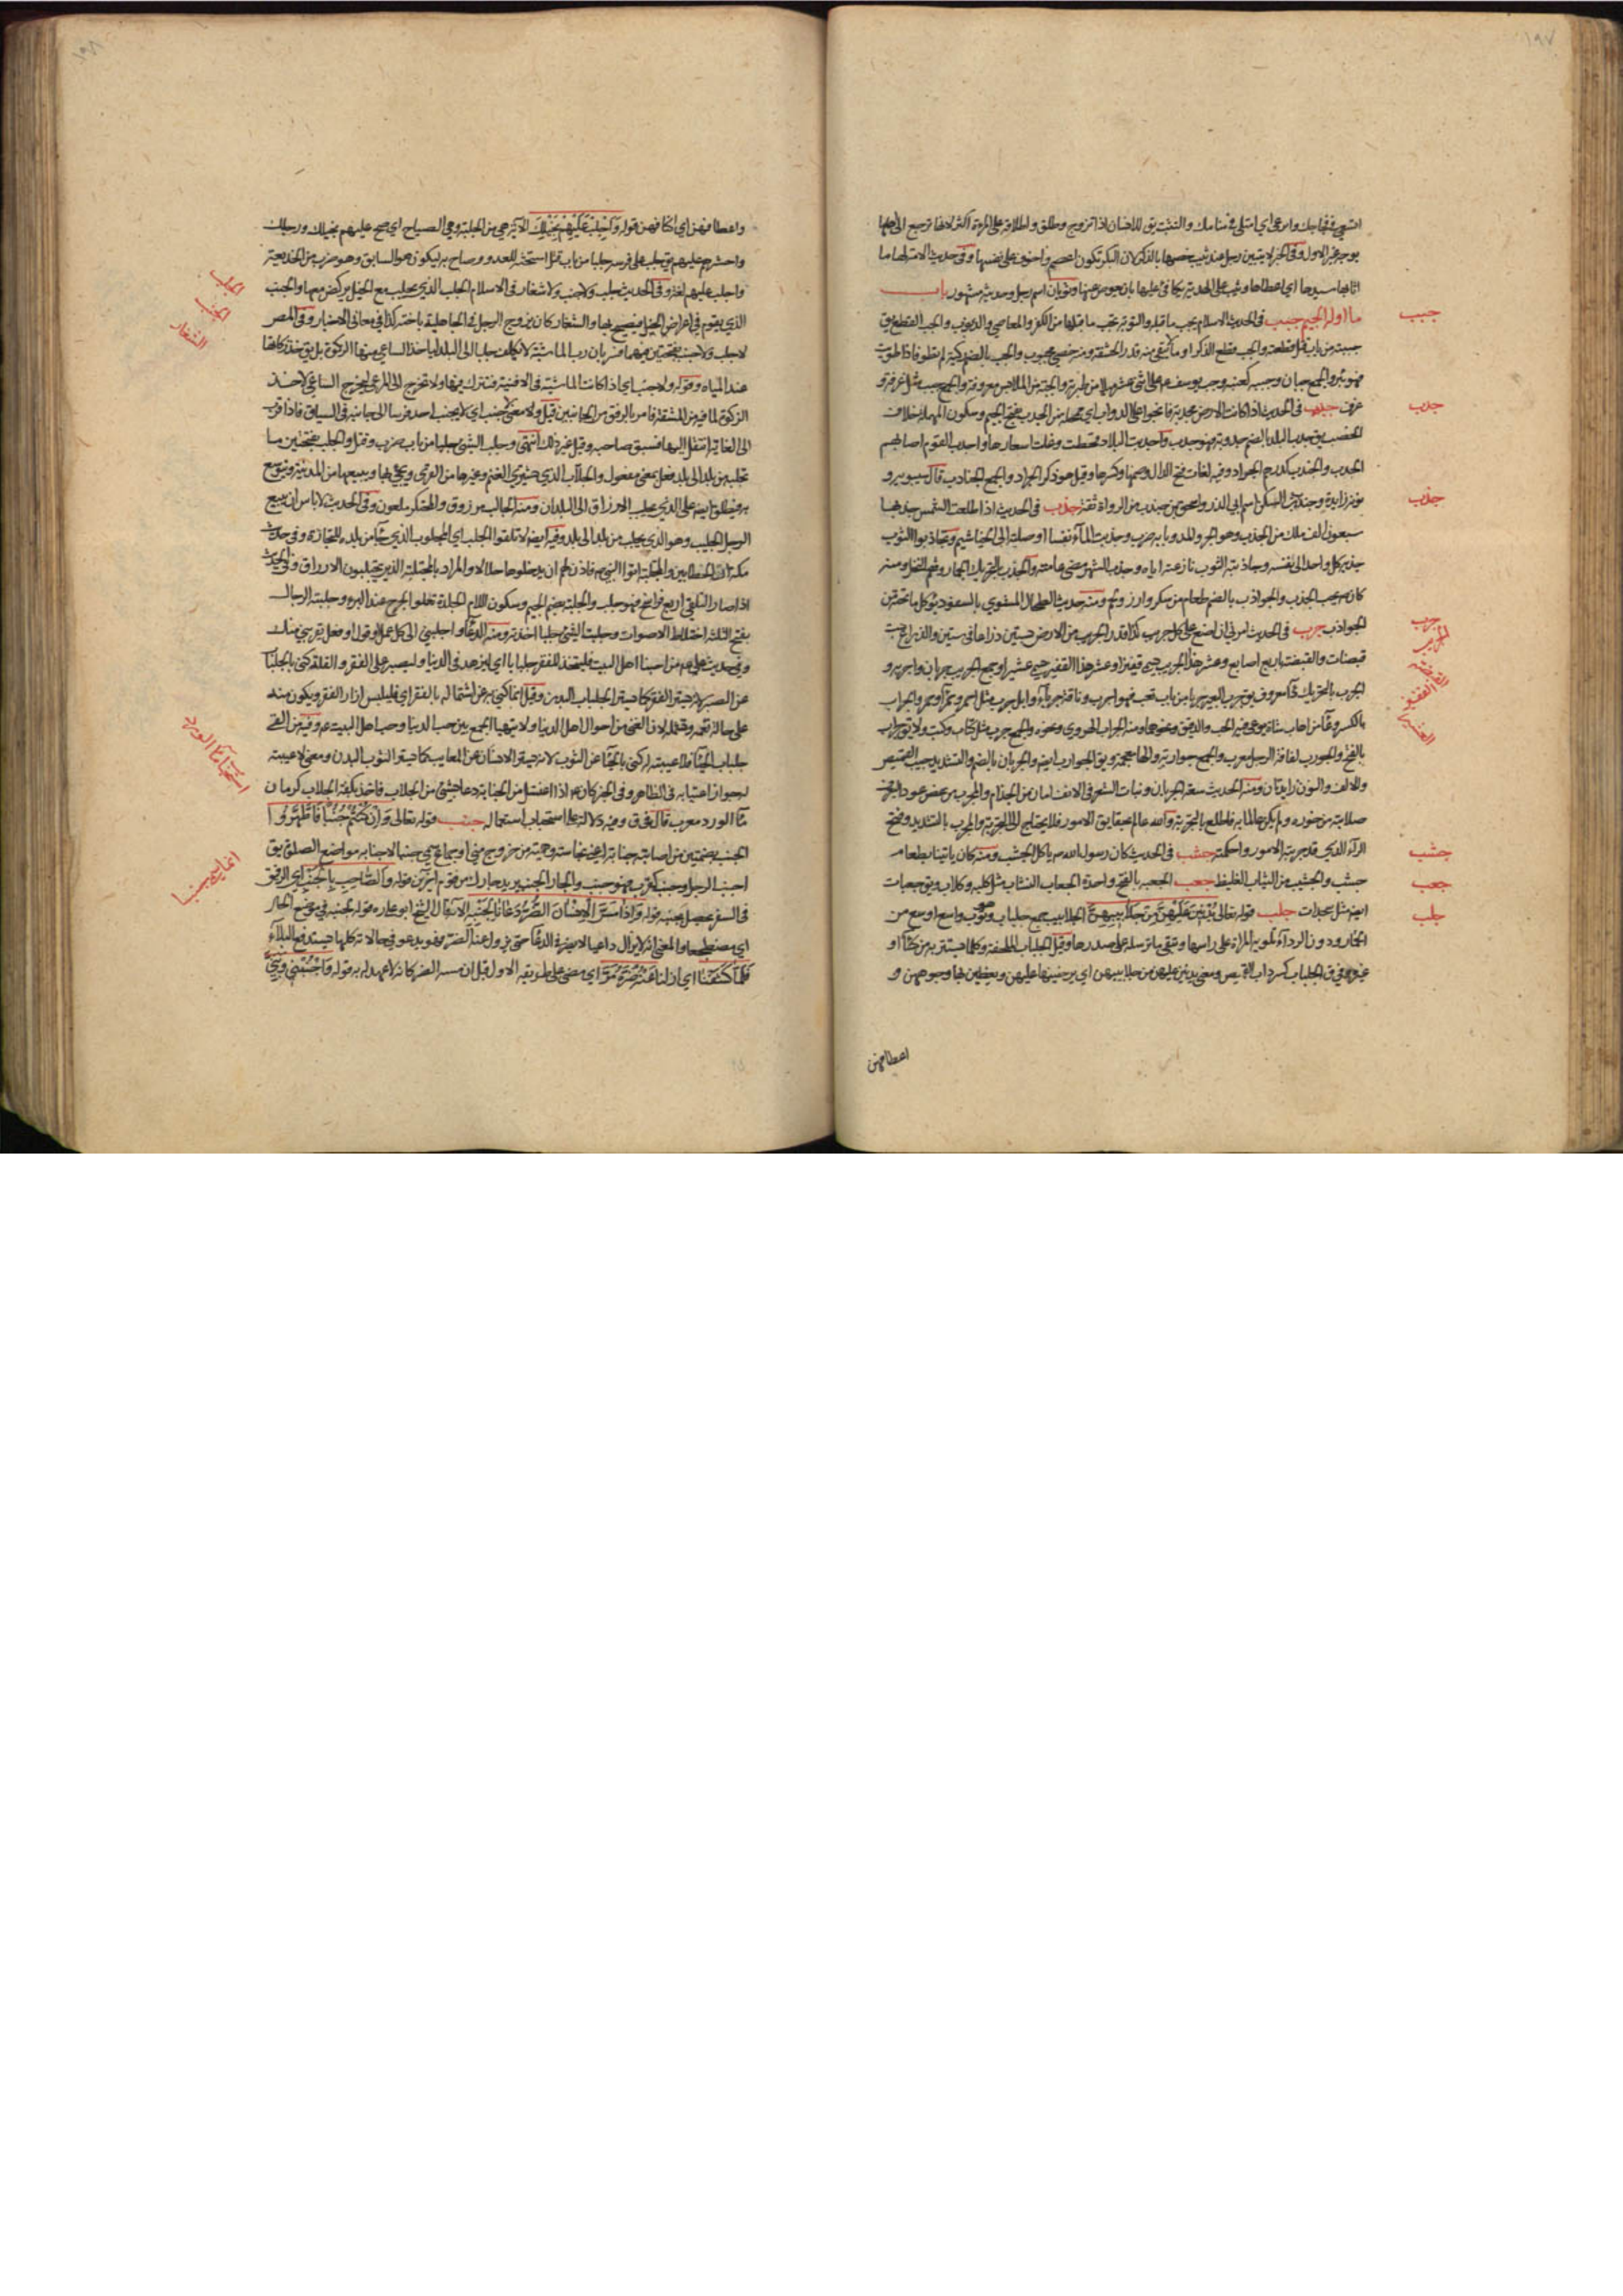 ١٩٧
يوجر غير الاول وفى الخبر لا يبيتن رجل عند ثيب خصها بالذكر لان البكر تكون اعصم واخوف على نفسها وفى حديث الامة لها ما
اتاها سيدها اى اعطاها وثوبان اسم رجل وحديثه مشهور باب
ما اوله الجيم جبب فى الحديث الاسلام يجب ما قبله والتوبة تجب ما قبلها من الكفر والمعاصى والذنوب والجب القطع يق
جببته من باب قتل قطعته والجب قطع الذكر او ما لا يبقى منه قدر الحشفة ومنه خصى مجبوب والجب بالضم ركية لم تطو فاذا طويت
فهو بئر والجمع جباب وجببة كعنبة وجب يوسف على اثنى عشر ميلا من طبرية والجبة من الملابس معروفة والجمع جبب مثل غرفة و
غرف جدب فى الحديث اذا كانت الارض مجدبة فانجوا على الدواب اى محلة من الجدب بفتح الجيم وسكون المهملة خلاف
الخصب يق جدب البلد بالضم جدوبة فهو جدب واجدبت البلاد قحطت وغلت اسعارها واجدب القوم اصابهم
الجدب والجندب كدرهم الجراد وفيه لغات فتح الدال وضمها وكسرها وقيل هو ذكر الجراد والجمع الجنادب قال سيبويه و
نونه زايدة جذب فى الحديث اذا طلعت الشمس جذبها
سبعون الف ملك من الجذب وهو الجر والمد وبابه ضرب وجذبت الماء نفسا او صلته الى الخياشيم وتجاذبوا الثوب
جذبه كل واحد الى نفسه وجاذبته الثوب نازعته اياه وجذب الشهر مضى عامته والجذب بالتحريك الجمار وشحم النخل ومنه
كان يحب الجذب والجواذب بالضم طعام من سكر وارز ولحم ومنه حديث الطحال المشوى بالسفود يؤكل ما تحته من
الجواذب جرب فى الحديث امرنى ان اضع على كل جريب كذا قدر الجريب من الارض بستين ذراعا فى ستين والذراع بست
قبضات والقبضة باربع اصابع وعشر هذا الجريب يسمى قفيزا وعشر هذا القفيز يسمى عشيرا وجمع الجريب جربان واجربة و
الجرب بالتحريك داء معروف يق جرب البعير جربا من باب تعب فهو اجرب وناقة جرباء وابل جرب مثل احمر وحمراء وحمر والجراب
بالكسر وعاء من اهاب شاة يوعى فيه الحب والدقيق ونحوهما ومنه الجراب الهروى ونحوه والجمع جرب مثل كتاب وكتب ولا يق جراب
بالفتح والجورب لفافة الرجل معرب والجمع جواربة والهاء للعجمة ويق الجوارب ايضا والجربان بالضم والتشديد جيب القميص
والالف والنون زايدتان ومنه الحديث سعة الجربان ونبات الشعر فى الانف امان من الجذام والمجرب من يعض عود
صلابته من خوره ولم يكن عالما به فاطلع بالتجربة والله عالم بحقايق الامور فلا يحتاج الى التجربة والمجرب بالتشديد وفتح
الراء الذى قد جربته الامور واحكمته جشب فى الحديث كان رسول الله ص ياكل الجشب ومنه كان ياتينا بطعام
جشب والجشيب من الثياب الغليظ جعب الجعبة بالفتح واحدة الجعاب النشاب مثل كلبة وكلاب ويق جعبات
ايضا مثل سجدات جلب قوله تعالى يُدْنِينَ عَلَيْهِنَّ مِنْ جَلَابِيبِهِنَّ الجلابيب جمع جلباب وهو ثوب واسع اوسع من
الخمار ودون الرداء تلويه المراة على راسها وتبقى ما ترسله على صدرها وقيل الجلباب الملحفة وكلما يستتر به من كساء او
غيره وفى ق الجلباب كسرداب القميص ومعنى يدنين عليهن من جلابيبهن اى يرخينها عليهن ويغطين بها وجوههن و
اعطافهن
جبب
جدب
جذب
جرب
الجريب
القفيز
العشير
جشب
جعب
جلب
١٩٨
واعطافهن اى اكتافهن قوله وَاَجْلِبْ عَلَيْهِمْ بِخَيْلِكَ الآية هى من الجلبة وهى الصياح اى صح عليهم بخيلك ورجلك
واحشرهم عليهم يق جلب على فرسه جلبا من باب قتل استحثه للعدو وصاح به ليكون هو السابق وهو ضرب من الخديعة
واجلب عليهم لغة وفى الحديث لا جلب ولا جنب ولا شغار فى الاسلام الجلب الذى يجلب مع الخيل يركض معها والجنب
الذى يقوم فى اعراض الخيل فيصيح بها والشغار كان يزوج الرجل فى الجاهلية باخته كذا فى معانى الاخبار وفى المصر
لا جلب ولا جنب بفتحتين فيهما فسر بان رب الماشية لا يكلف جلبها الى البلد لياخذ الساعى منها الزكوة بل يوخذ زكاتها
عند المياه وقوله ولا جنب اى اذا كانت الماشية فى الافنية فتترك فيها ولا تخرج الى المرعى ليخرج الساعى لاخذ
الزكوة لما فيه من المشقة فامر بالرفق من الجانبين وقيل معنى ولا جنب اى لا يجنب احد فرسا الى جانبه فى السباق فاذا قرب
الى الغاية انتقل اليها فسبق صاحبه وقيل غير ذلك انتهى وجلب الشئ جلبا من باب ضرب وقتل والجلب بفتحتين ما
تجلبه من بلد الى بلد فعل بمعنى مفعول والجلاب الذى يشترى الغنم وغيرها من القرى ويجئ بها ويبيعها من المدينة ويتوسع
به فيطلق ايضا على الذى يجلب الارزاق الى البلدان ومنه الجالب مرزوق والمحتكر ملعون وفى الحديث لا باس ان يبيع
الرجل الجلب وهو الذى يجلب من بلد الى بلد وفيه ايضا لا تلقوا الجلب اى المجلوب الذى جاء من بلد للتجارة وفى حديث
مكة ان الحطابين والمجتلبة اتوا النبى ص فاذن لهم ان يدخلوها حلالا والمراد بالمجتلبة الذين يجتلبون الارزاق وفى الحديث
اذا صار التلقى اربع فراسخ فهو جلب والجلبة بضم الجيم وسكون اللام الجلدة تعلو الجرح عند البرء وجلبة الرجال
بفتح الثلثة اختلاط الاصوات وجلبت الشئ جلبا اخذته ومنه الدعاء واجلبنى الى كل عمل او قول او فعل يقربنى منك
وفى حديث على ع من احبنا اهل البيت فليتخذ للفقر جلبابا اى ليزهد فى الدنيا وليصبر على الفقر والقلة كنى بالجلباب
عن الصبر لانه يستر الفقر كما يستر الجلباب البدن وقيل انما كنى به عن اشتماله بالفقر اى فليلبس ازار الفقر ويكون منه
على حالة تعمه وتشمله لان الغنى من احوال اهل الدنيا ولا يتهيا الجمع بين حب الدنيا وحب اهل البيت ع وفيه من القى
جلباب الحياء فلا غيبة له كنى بالحياء عن الثوب لانه يستر الانسان عن المعايب كما يستر الثوب البدن ومعنى لا غيبة
له جواز اغتيابه فى الظاهر وفى الخبر كان ع اذا اغتسل من الجنابة دعا بشئ من الجلاب فاخذ بكفه الجلاب كرمان
ماء الورد معرب قاله فى ق وفيه دلالة على استحباب استعماله جنب قوله تعالى وَاِنْ كُنْتُمْ جُنُبًا فَاطَّهَّرُوا
الجنب بضمتين من اصابته جنابة اعنى نجاسة وهمية من خروج منى او جماع سمى جنبا لاجتنابه مواضع الصلوة يق
اجنب الرجل وجنب كقرب فهو جنب والجار الجنب يريد جارك من قوم آخرين قوله وَالصَّاحِبِ بِالْجَنْبِ اى الرفيق
فى السفر قوله وَاِذَا مَسَّ الْاِنْسَانَ الضُّرُّ دَعَانَا لِجَنْبِهِ الآية قال الشيخ ابو على ره قوله لجنبه فى موضع الحال
اى مضطجعا والمعنى انه لا يزال داعيا لا يفتر فى الدعاء حتى يزول عنه الضر فهو يدعو فى حالاته كلها يستدفع البلاء
فَلَمَّا كَشَفْنَا اى ازلنا عَنْهُ ضُرَّهُ مَرَّ اى مضى على طريقه الاول قبل ان مسه الضر كانه لا عهد له به قوله وَاجْنُبْنِى وَبَنِىَّ
الجلب
الجنب
الشغار
استحباب ماء الورد